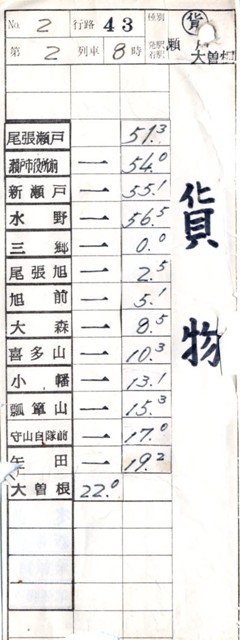 No. 2 行路 43 種別 貨
第 2 列車 8時 発駅 着駅 瀬 大曽根
尾張瀬戸 51.3
瀬戸市役所前 — 54.0
新瀬戸 — 55.1
水野 — 56.5
三郷 — 0.0
尾張旭 — 2.5
旭前 — 5.1
大森 — 8.5
喜多山 — 10.3
小幡 — 13.1
瓢箪山 — 15.3
守山自隊前 — 17.0
矢田 — 19.2
大曽根 22.0
貨物